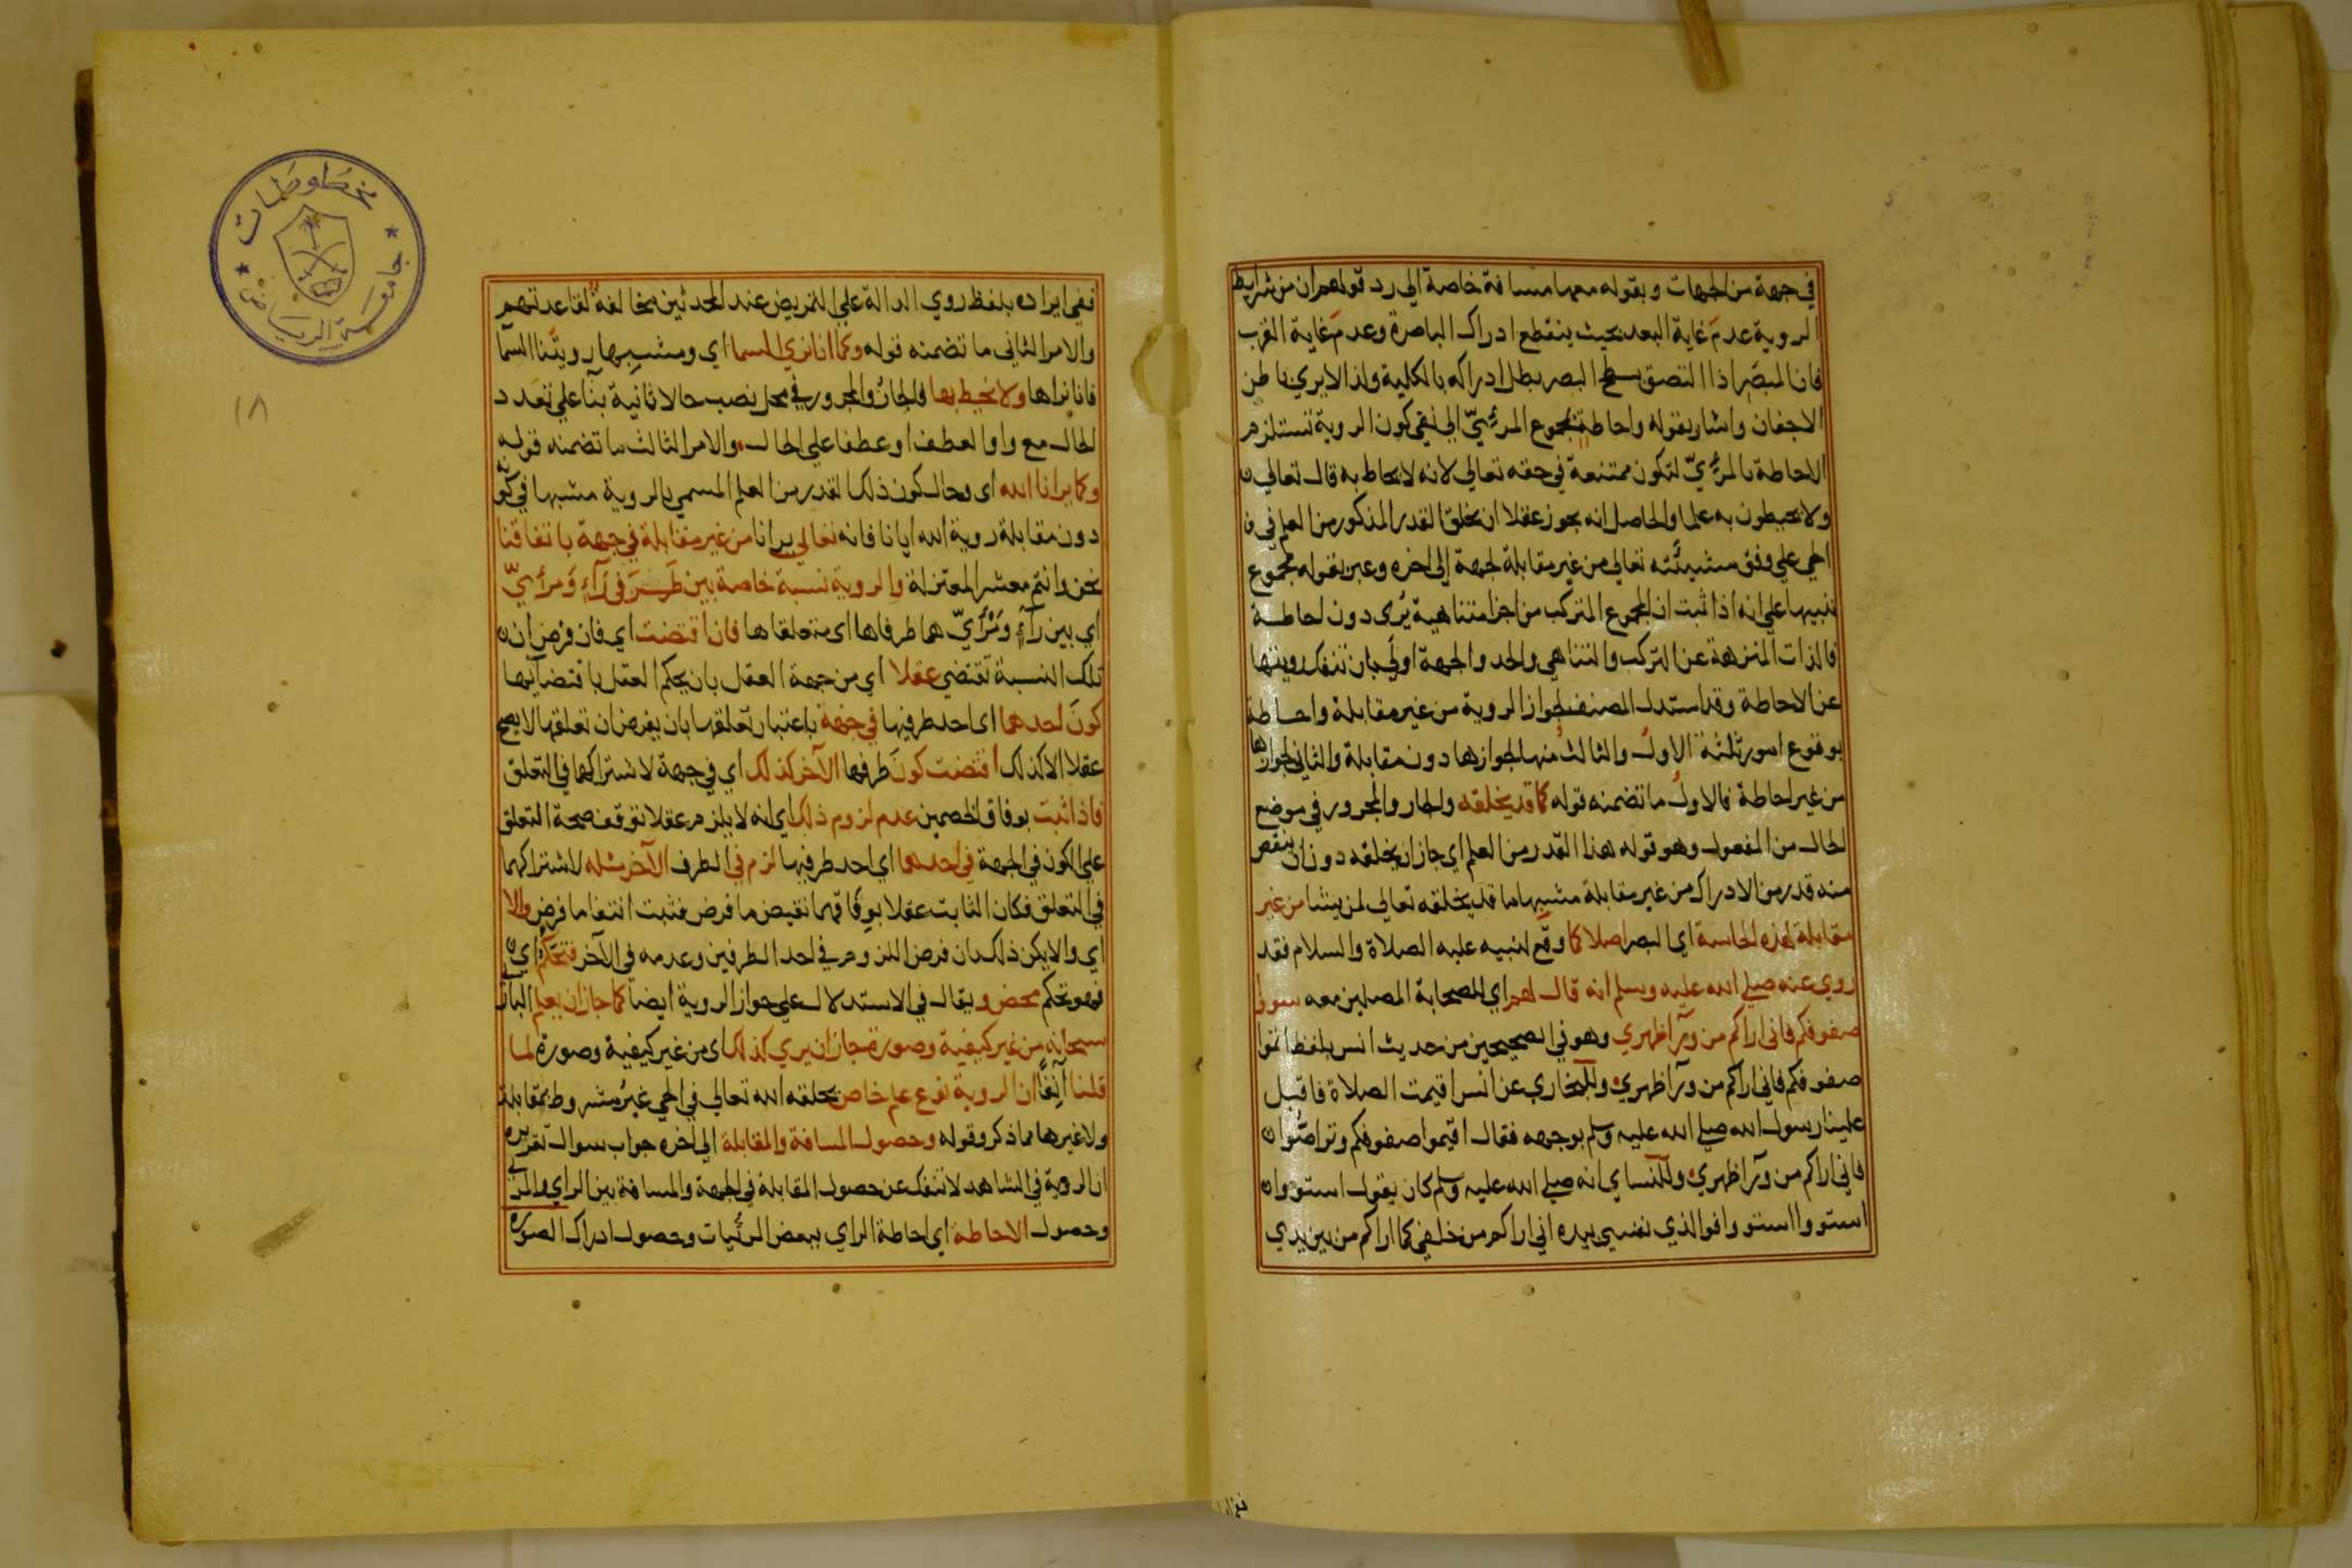 في جهة من الجهات وبقوله معها مسافة خاصة الي رد قولهم ان من شرايط
الروية عدم غاية البعد بحيث ينقطع ادراك الباصرة وعدم غاية القرب
فان المبصَر اذا التصق بسطح البصر بطل ادراكه بالكلية ولذا لا يري باطن
الاجفان واشار بقوله واحاطة بمجموع المرئيّ الي نفي كون الروية تستلزم
الاحاطة بالمرئيّ لتكون ممتنعة في حقه تعالي لانه لا يحاط به قال تعالي
ولا يحيطون به علما والحاصل انه يجوز عقلا ان يخلق القدر المذكور من العلم في
الحي علي وفق مشيئته تعالي من غير مقابلة لجهة الي اخره وعبر بقوله بمجموع
تنبيها علي انه اذا ثبت ان المجموع المتركب من اجزا متناهية يُرى دون احاطة
فالذات المنزهة عن التركب والتناهي والحد والجهة اولي بان تنفك رويتها
عن الاحاطة وقد استدل المصنف لجواز الروية من غير مقابلة واحاطة
بوقوع امور ثلثة الاول والثالث منها لجوازها دون مقابلة والثاني لجوازها
من غير احاطة فالاول ما تضمنه قوله كما قد يخلقه والجار والمجرور في موضع
الحال من المفعول وهو قوله هذا القدر من العلم اي جاز ان يخلقه دون ان ينقص
منه قدر من الادراك من غير مقابلة مشبها ما قد يخلقه تعالي لمن يشا من غير
مقابلة لهذه الحاسة اي البصر اصلا كما وقع لنبيه عليه الصلاة والسلام فقد
روي عنه صلي الله عليه وسلم انه قال لهم اي للصحابة المصلين معه سووا
صفوفكم فاني اراكم من ورآ ظهري وهو في الصحيحين من حديث انس بلفظ اتموا
صفوفكم فاني اراكم من ورآ ظهري وللبخاري عن انس اقيمت الصلاة فاقبل
علينا رسول الله صلي الله عليه وسلم بوجهه فقال اقيموا صفوفكم وتراصّوا
فاني اراكم من ورآ ظهري وللنساي انه صلي الله عليه وسلم كان يقول استووا
استووا استووا فوالذي نفسي بيده اني اراكم من خلفي كما اراكم من بين يدي
ففي ايراده بلفظ روي الدالة علي التمريض عند المحدثين مخالفة لقاعدتهم
والامر الثاني ما تضمنه قوله وكما انا نري السما اي ومشبها رويتنا السمآ
فانا نراها ولا نحيط بها فالجارُ والمجرور في محل نصب حالا ثانية بنآ علي تعدد
الحال مع واو العطف او عطفا علي الحال والامر الثالث ما تضمنه قوله
وكما يرانا الله اي وحال كون ذلك القدر من العلم المسمي بالروية مشبها في كونه
دون مقابلة روية الله ايانا فانه تعالي يرانا من غير مقابلة في جهة باتفاقنا
نحن وانتم معشر المعتزلة والروية نسبة خاصة بين طَرَفَي رَآءٍ وَمرئيّ
اي بين رآءٍ ومَرْئيّ هما طرفاها اي متعلقاها فان اقتضت اي فان فرض ان
تلك النسبة تقتضي عقلا اي من جهة العقل بان يحكم العقل باقتضآيها
كونَ احدهما اي احد طرفيها في جهة باعتبار تعلقها بان يفرض ان تعلقها لا يصح
عقلا الا كذلك اقتضت كونَ طرفها الآخر كذلك اي في جهة لاشتراكهما في التعلق
فاذا ثبت بوفاق الخصمين عدم لزوم ذلك اي انه لا يلزم عقلا توقف صحة التعلق
علي الكون في الجهة في احدهما اي احد طرفيها لزم في الطرف الآخر مثله لاشتراكهما
في التعلق فكان الثابت عقلا بوفاقهما نقيض ما فرض فثبت انتفا ما فرض والا
اي والا يكن ذلك بان فرض اللزوم في احد الطرفين وعدمه في الآخر فتحكّم اي
فهو تحكم محض ويقال في الاستدلال علي جواز الروية ايضا كما جاز ان يعلم الباري
سبحانه من غير كيفية وصورة جاز ان يري كذلك اي من غير كيفية وصورة لما
قلنا آنِفًا ان الروية نوع علم خاص يخلقه الله تعالي في الحي غيرُ مشروط بمقابلة
ولا غيرها مما ذكر وقوله وحصول المسافة والمقابلة الي اخره جواب سوال تقريره
ان الروية في الشاهد لا تنفك عن حصول المقابلة في الجهة والمسافة بين الراي والمرئي
وحصول الاحاطة اي احاطة الراي ببعض المرئيات وحصول ادراك الصوره
مخطوطات
جامعة الرياض
١٨